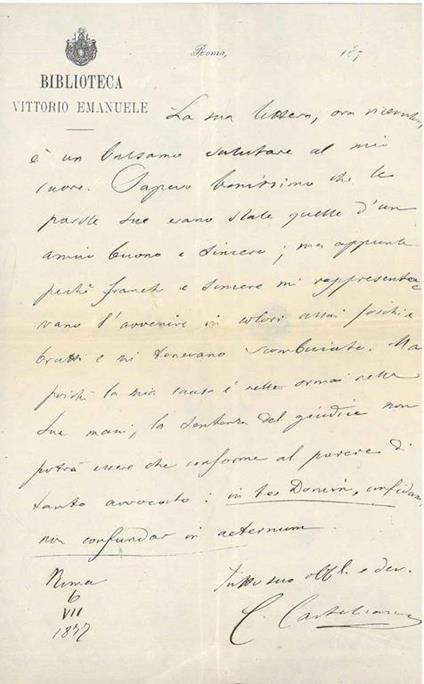 Roma, 187
BIBLIOTECA
VITTORIO EMANUELE
La sua lettera, ora ricevuta,
è un balsamo salutare al mio
cuore. Sapevo benissimo che le
parole sue erano state quelle d'un
amico buono e sincero; ma appunto
perchè franche e sincere mi rappresenta
vano l'avvenire in colori assai foschi e
brutti e mi tenevano scombuiato. Ma
poichè la mia causa è nelle ormai nelle
sue mani, la sentenza del giudice non
potrà essere che conforme al parere di
tanto avvocato: in te Domin, confidam,
non confundar in aeternum.
Roma
6
VII
1877
Tutto suo obbl. e dev.
C. Castellani